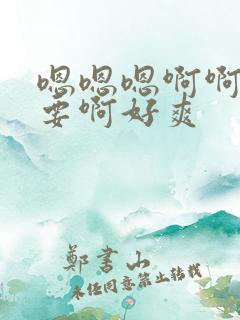 嗯嗯嗯啊啊
要啊好爽
郑书山
未经同意禁止转载